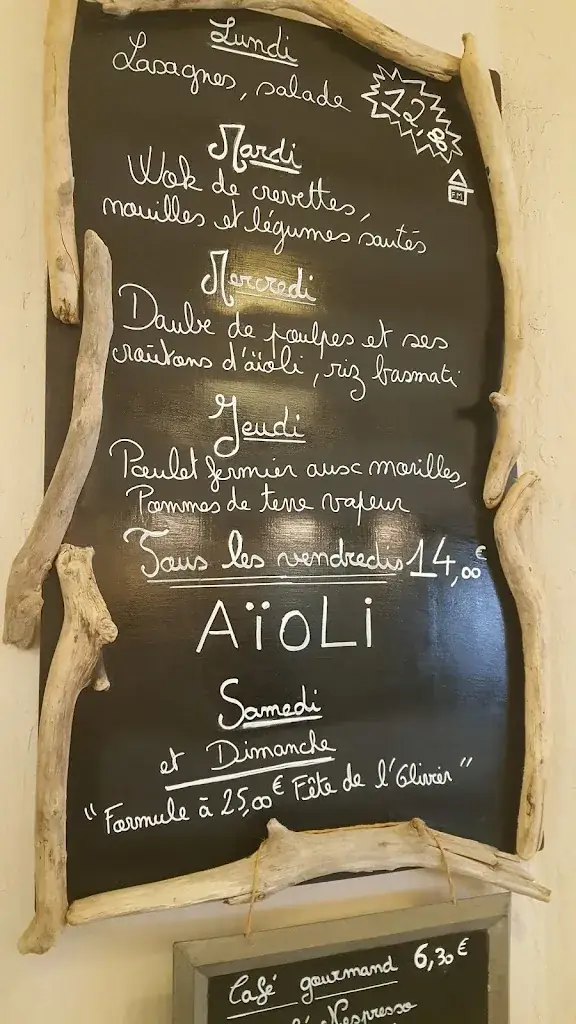 Lundi
Lasagnes, salade
12,80
Mardi
FM
Wok de crevettes,
nouilles et légumes sautés
Mercredi
Daube de poulpes et ses
croûtons d'aïoli, riz basmati
Jeudi
Poulet fermier aux morilles,
Pommes de terre vapeur
Tous les vendredis 14,00€
AïoLi
Samedi
et Dimanche
"Formule à 25,00€ Fête de l'Olivier"
Café gourmand 6,30€
Nespresso